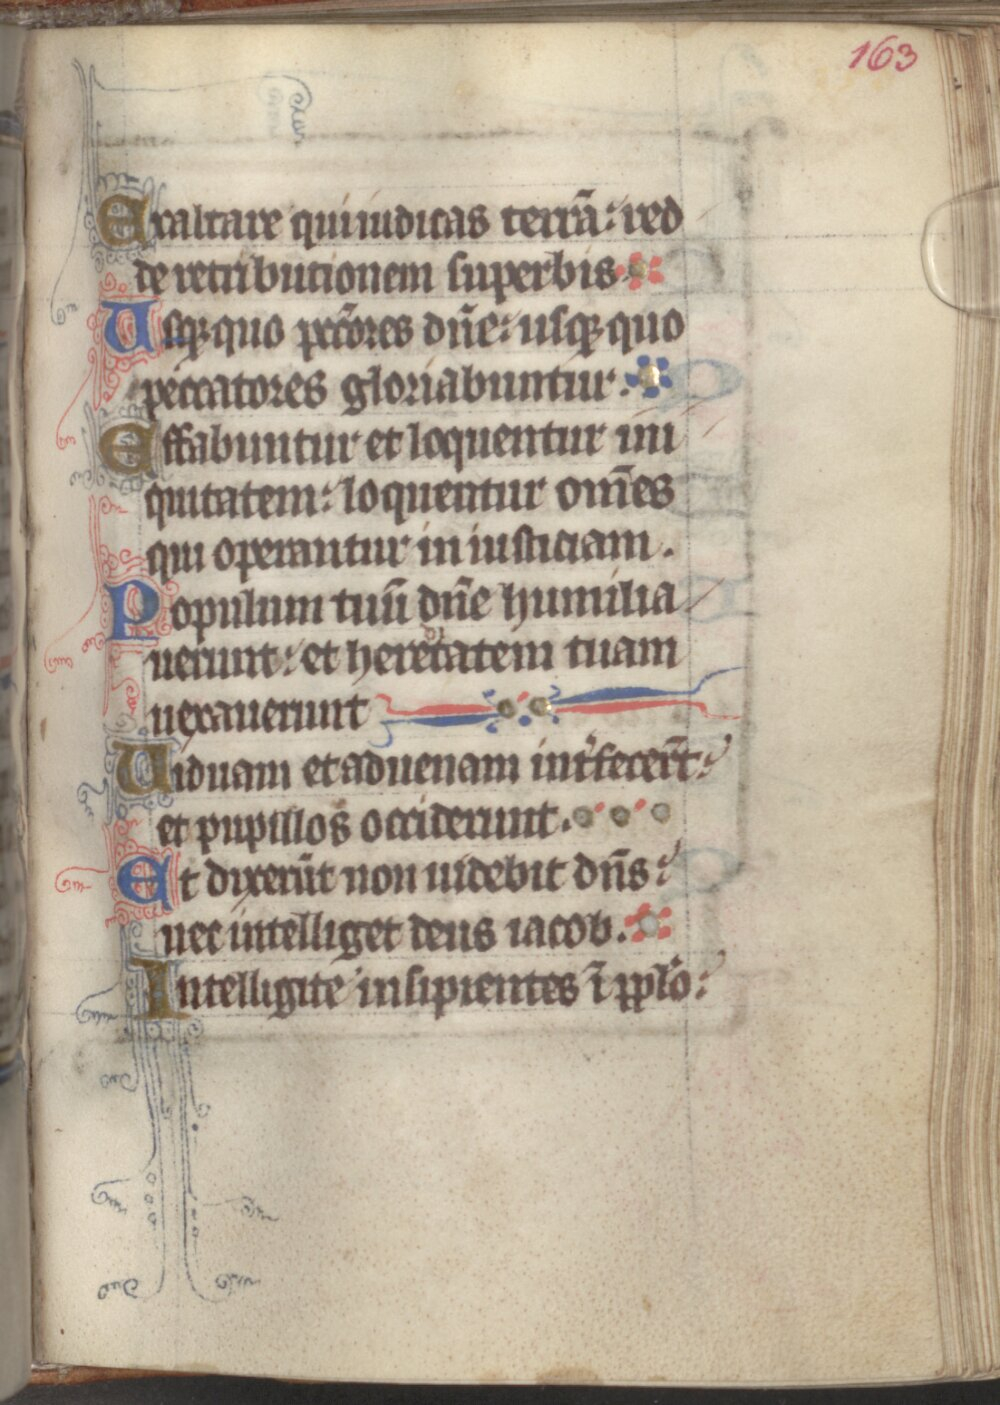 163
Exaltare qui iudicas terrã: red
de retributionem superbis
Usqꝫ quo pctõres dñe: usqꝫ quo
peccatores gloriabuntur.
Effabuntur et loquentur ini
quitatem: loquentur om̃es
qui operantur in iusticiam.
Populum tuũ dñe humilia
uerunt: et heretatem tuam
uexauerunt
Uiduam et aduenam int̾fecer̃t:
et pupillos occiderunt.
Et dixerũt non uidebit dñs:
nec intelliget deus iacob.
Intelligite insipientes ĩ pplõ: